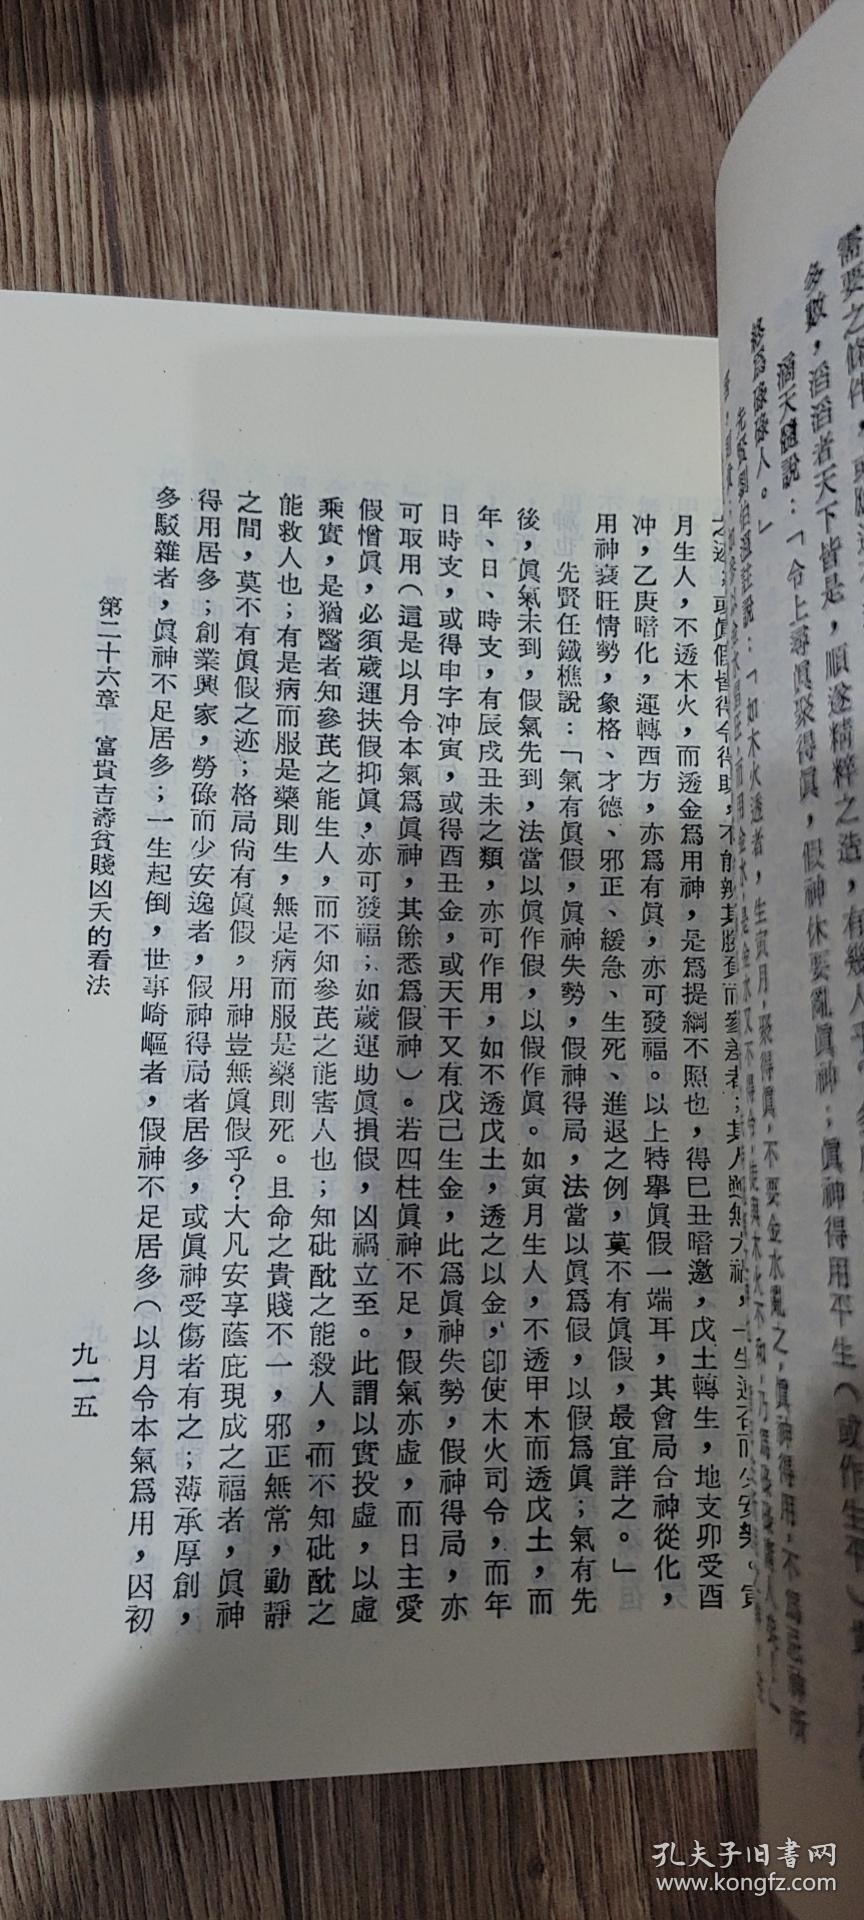 多數，滔滔者天下皆是，順遂精粹之造，有幾人乎
滴天髓說：「令上尋眞聚得眞，假神休要亂眞神；眞神得用平生（或作生平）
終爲碌碌人。」
說：「如木火透者，生寅月，聚得眞，不要金水亂之，眞神得用，不爲忌神所
之迹；或眞假皆得令得助，不能辨其勝負而參差者；其人雖無大禍，一生迍否而少安樂。寅
月生人，不透木火，而透金爲用神，是爲提綱不照也，得巳丑暗邀，戊土轉生，地支卯受酉
冲，乙庚暗化，運轉西方，亦爲有眞，亦可發福。以上特擧眞假一端耳，其會局合神從化，
用神衰旺情勢，象格、才德、邪正、緩急、生死、進退之例，莫不有眞假，最宜詳之。」
先賢任鐵樵說：「氣有眞假，眞神失勢，假神得局，法當以眞爲假，以假爲眞；氣有先
後，眞氣未到，假氣先到，法當以眞作假，以假作眞。如寅月生人，不透甲木而透戊土，而
年、日、時支，有辰戌丑未之類，亦可作用，如不透戊土，透之以金，卽使木火司令，而年
日時支，或得申字冲寅，或得酉丑金，或天干又有戊己生金，此爲眞神失勢，假神得局，亦
可取用（這是以月令本氣爲眞神，其餘悉爲假神）。若四柱眞神不足，假氣亦虛，而日主愛
假憎眞，必須歲運扶假抑眞，亦可發福；如歲運助眞損假，凶禍立至。此謂以實投虛，以虛
乘實，是猶醫者知參芪之能生人，而不知參芪之能害人也；知砒酖之能殺人，而不知砒酖之
能救人也；有是病而服是藥則生，無是病而服是藥則死。且命之貴賤不一，邪正無常，動靜
之間，莫不有眞假之迹；格局尙有眞假，用神豈無眞假乎？大凡安享蔭庇現成之福者，眞神
得用居多；創業興家，勞碌而少安逸者，假神得局者居多，或眞神受傷者有之；薄承厚創，
多駁雜者，眞神不足居多；一生起倒，世事崎嶇者，假神不足居多（以月令本氣爲用，因初
第二十六章　富貴吉壽貧賤凶夭的看法
九一五
孔夫子旧書网
www.kongfz.com